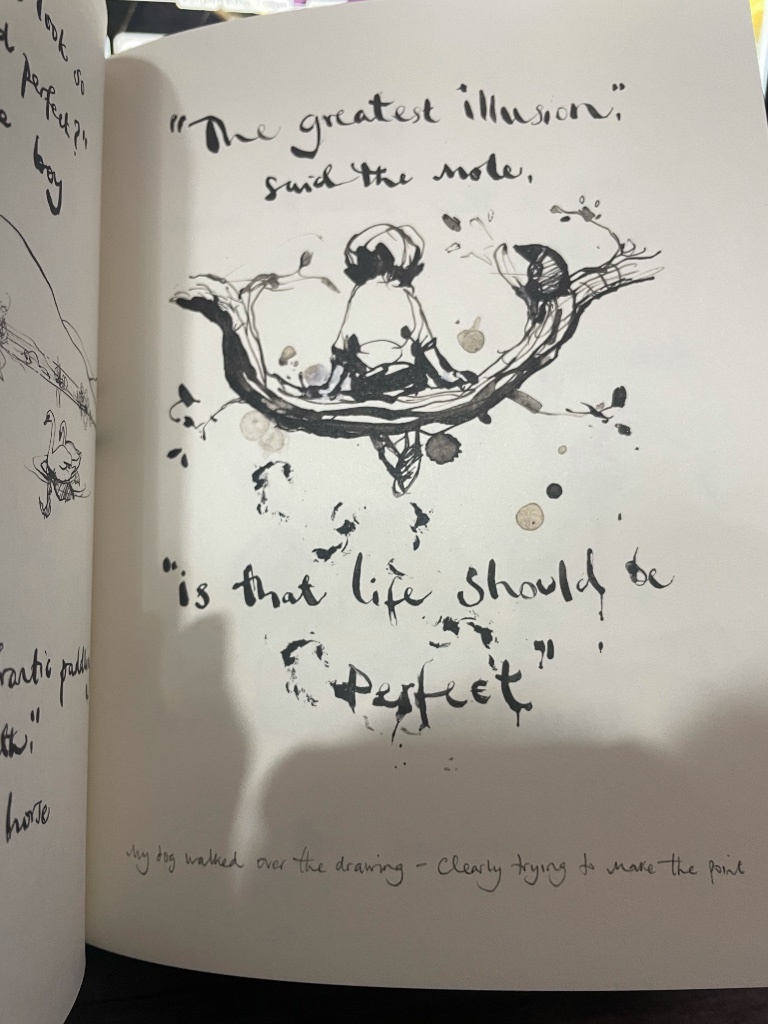 look so
perfect?"
boy
frantic
horse
"The greatest illusion,"
said the mole,
"is that life should be
Perfect"
My dog walked over the drawing - Clearly trying to make the point